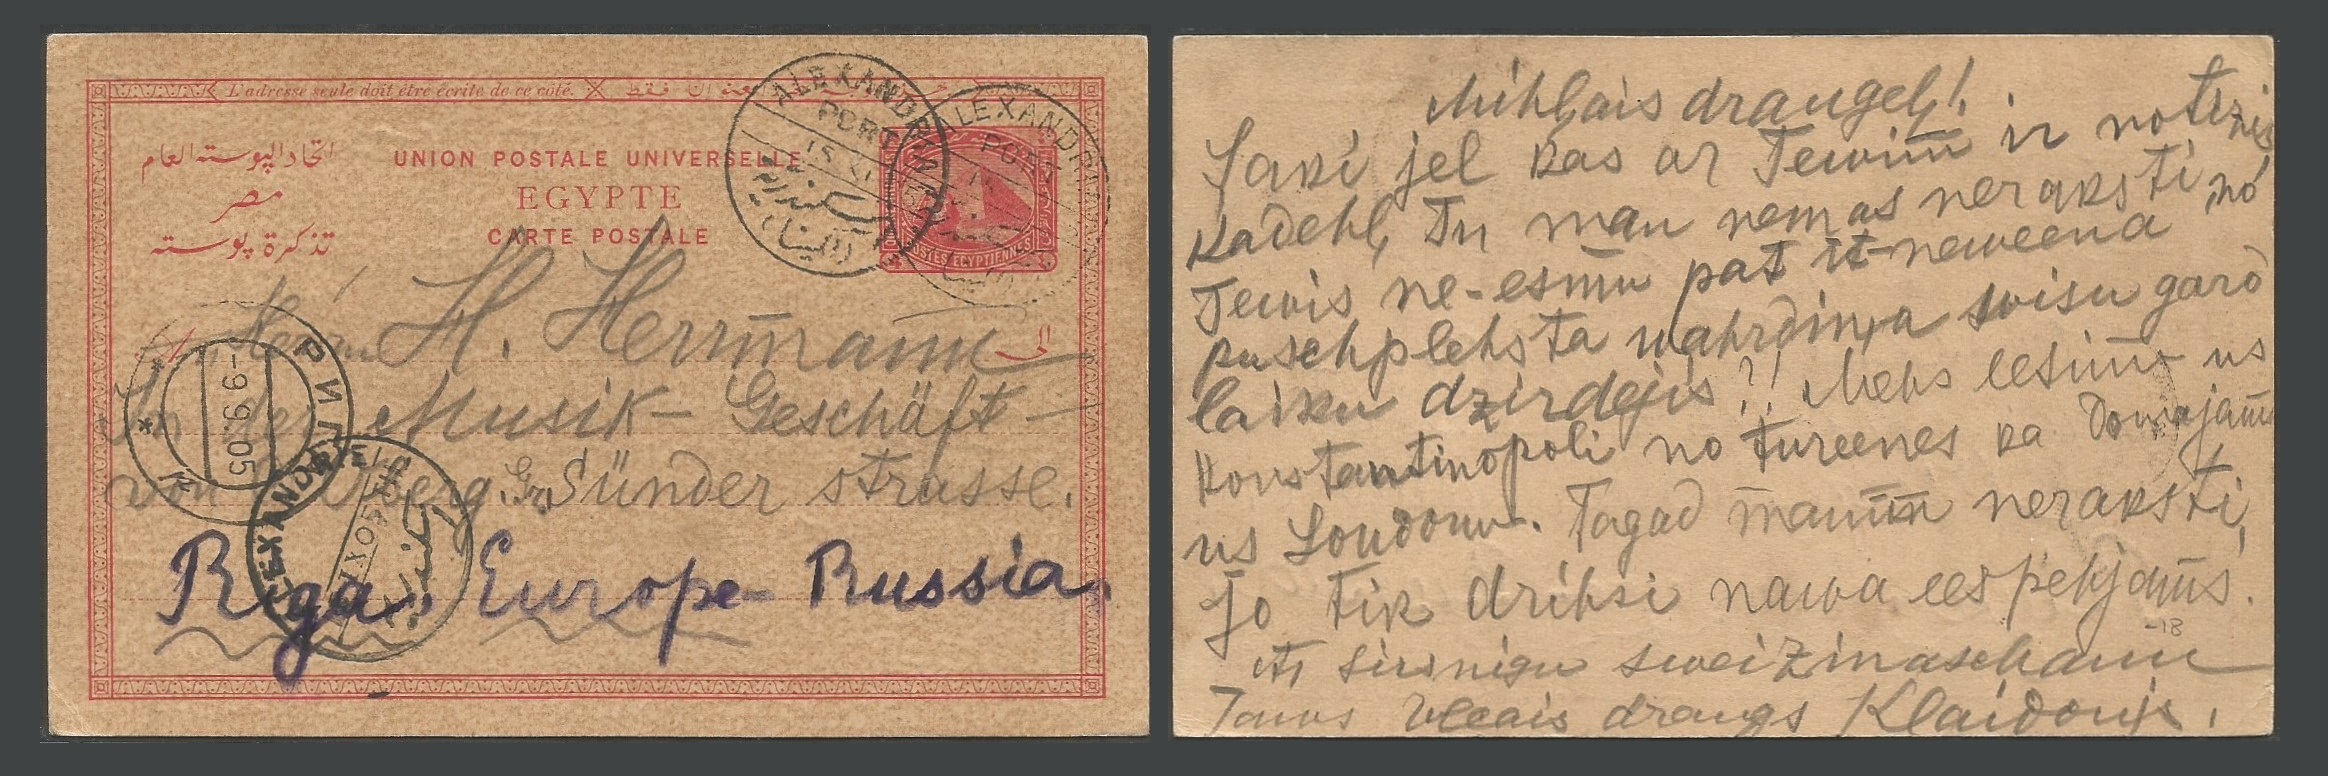 L'adresse seule doit être écrite de ce côté.
اتحاد البوسته العام
مصر
تذكرة بوسته
UNION POSTALE UNIVERSELLE
EGYPTE
CARTE POSTALE
POSTES EGYPTIENNES
ALEXANDRIA
PORT
15 XI
ALEXANDRIA
PORT
الى
Herrn H. Herrmann
In der Musik-Geschäft
von Gr. Sünder strasse.
Riga, Europe-Russia.
РИГА
-9.9.05
ALEXANDRIA
Mihlais draugel!
Saki jel kas ar Tewim ir notizis
kadehl, Tu man nemas neraksti, no
Tewis ne-esmu pat it-neweena
puschplehsta wahrdina wisu garo
laiku dzirdejis?! Mehs eesim us
Konstantinopoli no tureenes ka Domajams
us Londonu. Tagad mamm neraksti,
jo tik drihsi nawa eespehjams.
Ar sirsnigu sweizinaschanu
Taws wezais draugs Klaidonis.
-18